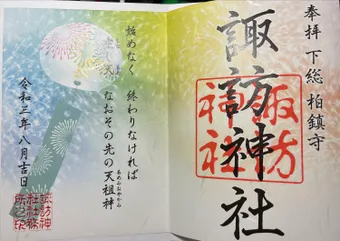 奉拝 下総 柏鎮守
諏訪神社
諏訪
神社
始めなく 終わりなければ
天 なおその先の天祖神
令和三年八月吉日
諏訪神
社社務
所之印